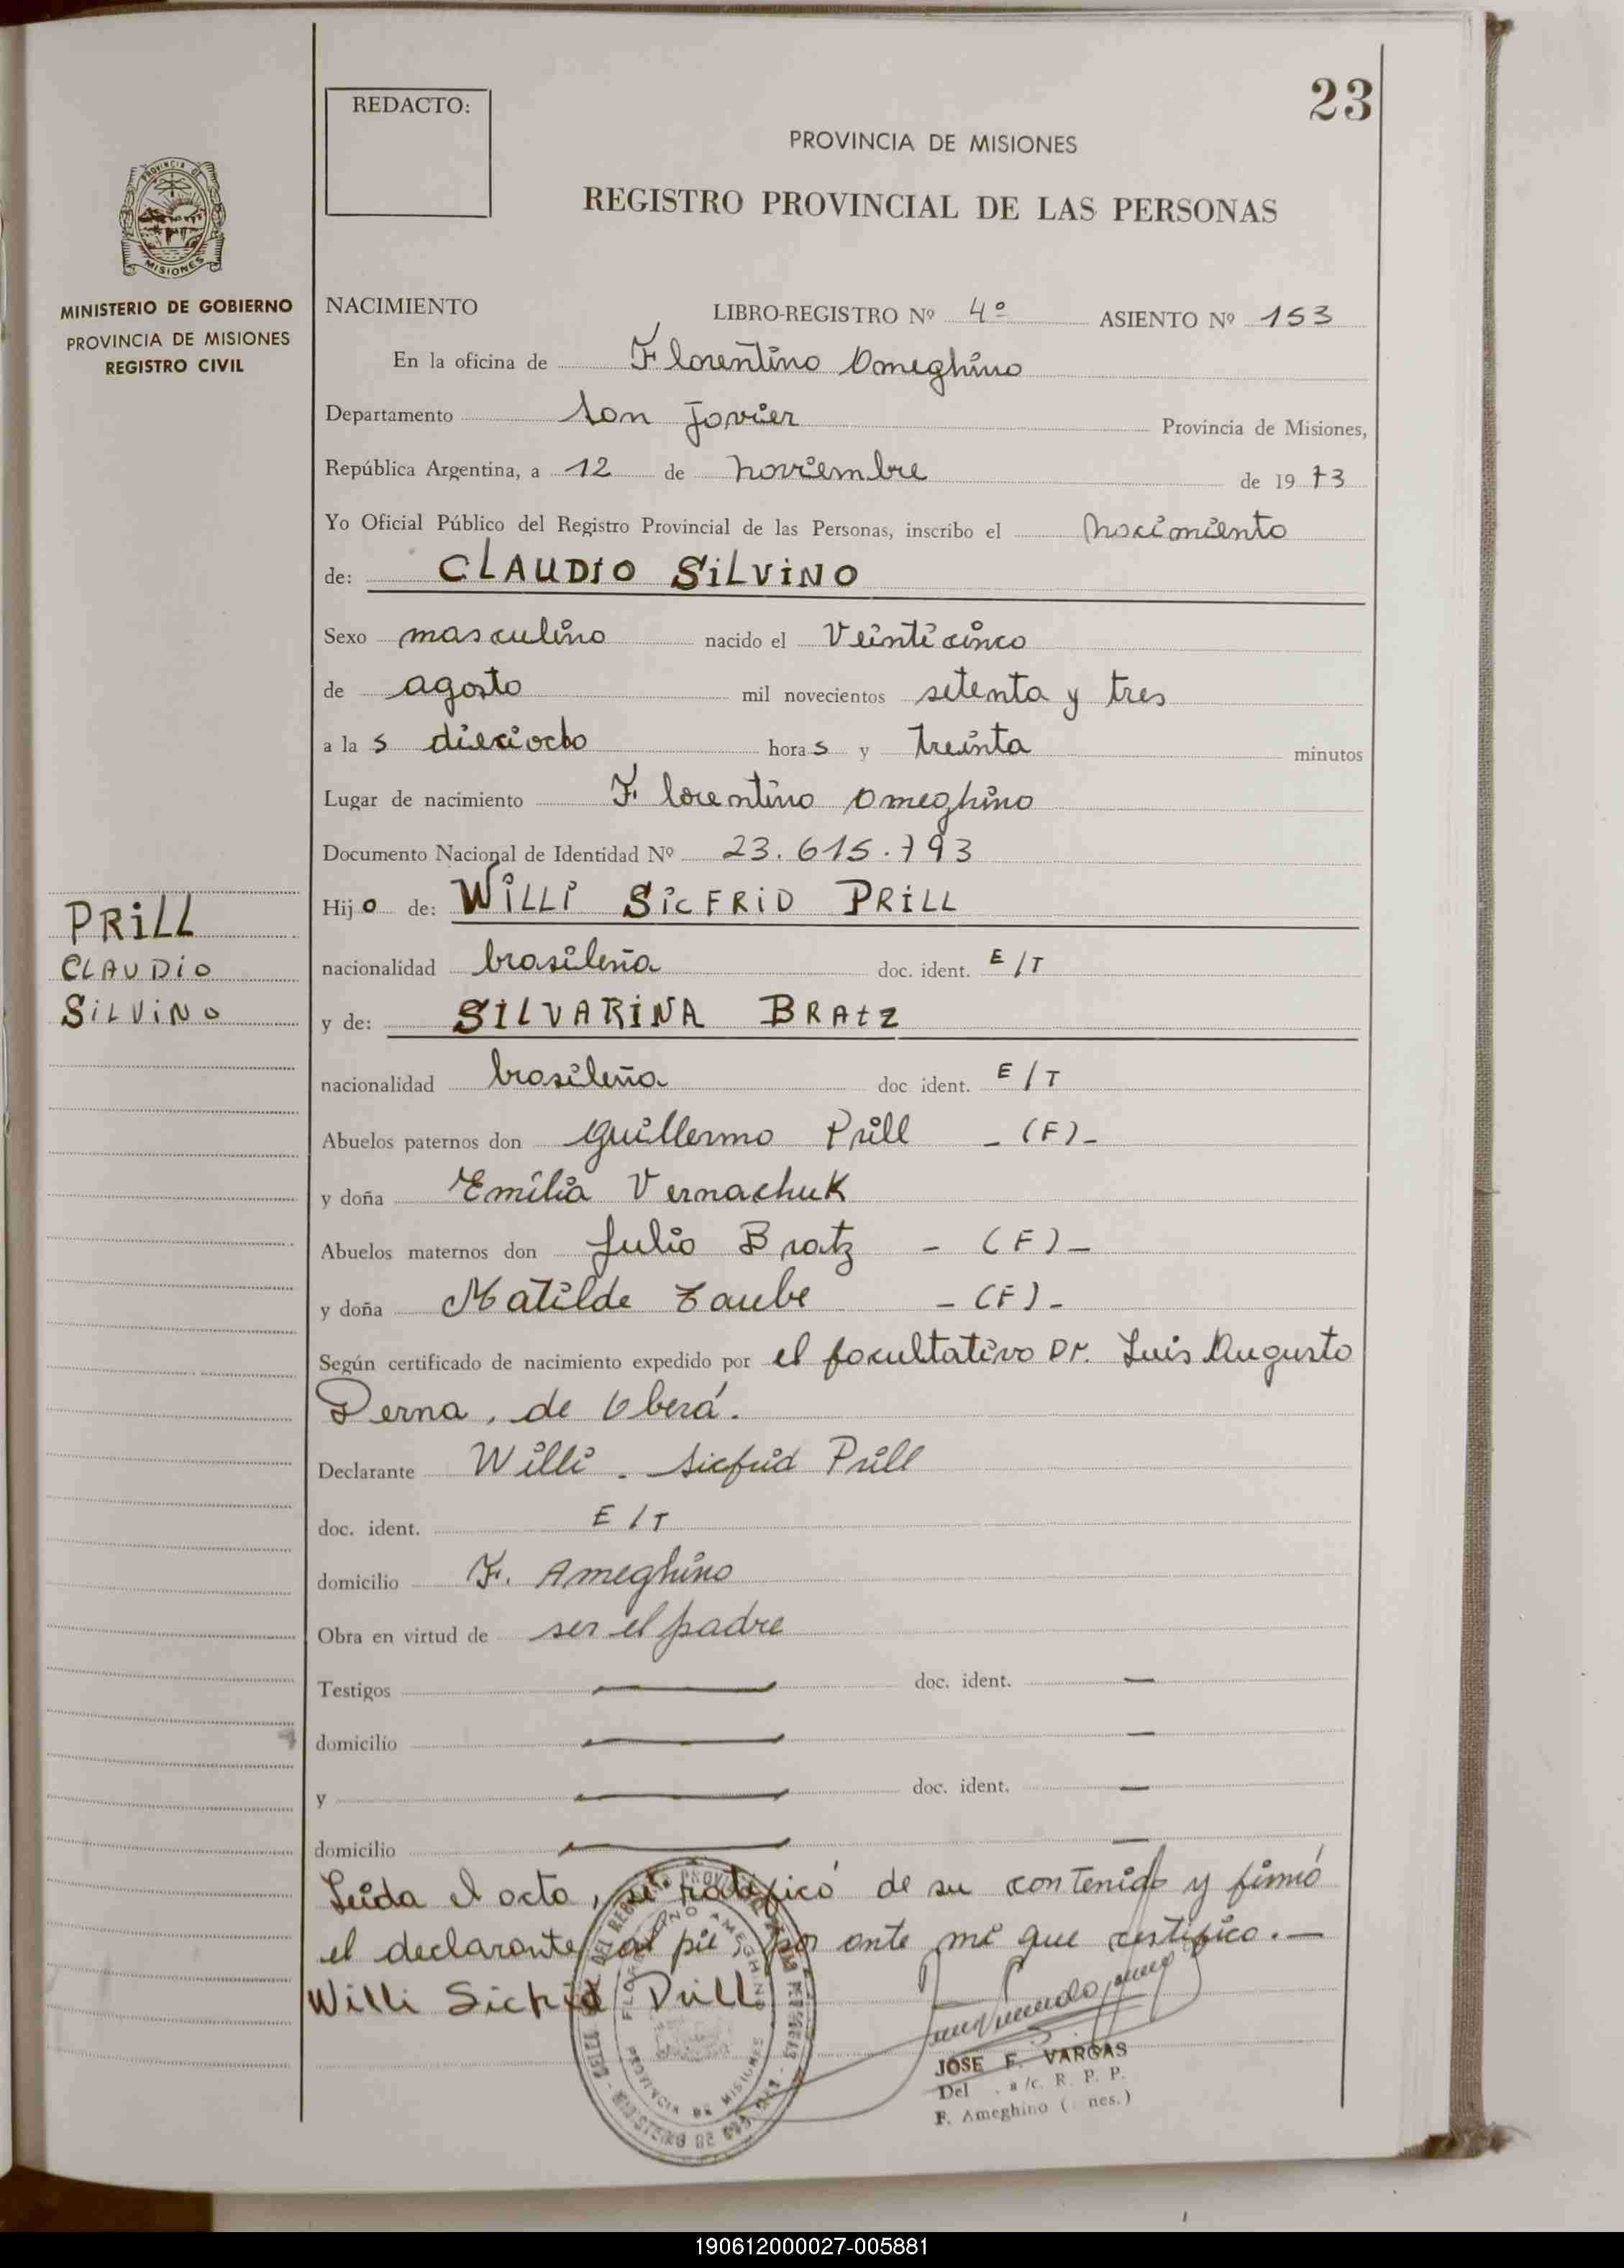 23
REDACTO:
PROVINCIA DE MISIONES
REGISTRO PROVINCIAL DE LAS PERSONAS
PROVINCIA DE
MISIONES
MINISTERIO DE GOBIERNO
PROVINCIA DE MISIONES
REGISTRO CIVIL
NACIMIENTO LIBRO-REGISTRO Nº 4º ASIENTO Nº 153
En la oficina de Florentino Ameghino
Departamento San Javier Provincia de Misiones,
República Argentina, a 12 de noviembre de 1973
Yo Oficial Público del Registro Provincial de las Personas, inscribo el nacimiento
de: CLAUDIO SILVINO
Sexo masculino nacido el Veinticinco
de agosto mil novecientos setenta y tres
a las dieciocho horas y treinta minutos
Lugar de nacimiento Florentino Ameghino
Documento Nacional de Identidad Nº 23.615.793
Hijo de: WILLI SICFRID PRILL
nacionalidad brasileña doc. ident. E/T
y de: SILVARINA BRATZ
nacionalidad brasileña doc. ident. E/T
Abuelos paternos don Guillermo Prill - (F) -
y doña Emilia Vernachuk
Abuelos maternos don Julio Bratz - (F) -
y doña Matilde Zaube - (F) -
Según certificado de nacimiento expedido por el facultativo Dr. Luis Augusto
Derna, de Oberá.
Declarante Willi. Sicfrid Prill
doc. ident. E/T
domicilio F. Ameghino
Obra en virtud de ser el padre
Testigos — doc. ident. —
domicilio — —
y — doc. ident. —
domicilio — —
Leída el acta, se ratificó de su contenido y firmó
el declarante al pie, por ante mí que certifico.—
Willi Sicfrid Prill
PRILL
CLAUDIO
SILVINO
FLORENTINO AMEGHINO
PROVINCIA DE MISIONES
JOSE F. VARGAS
Del . a/c. R. P. P.
F. Ameghino ( nes.)
190612000027-005881